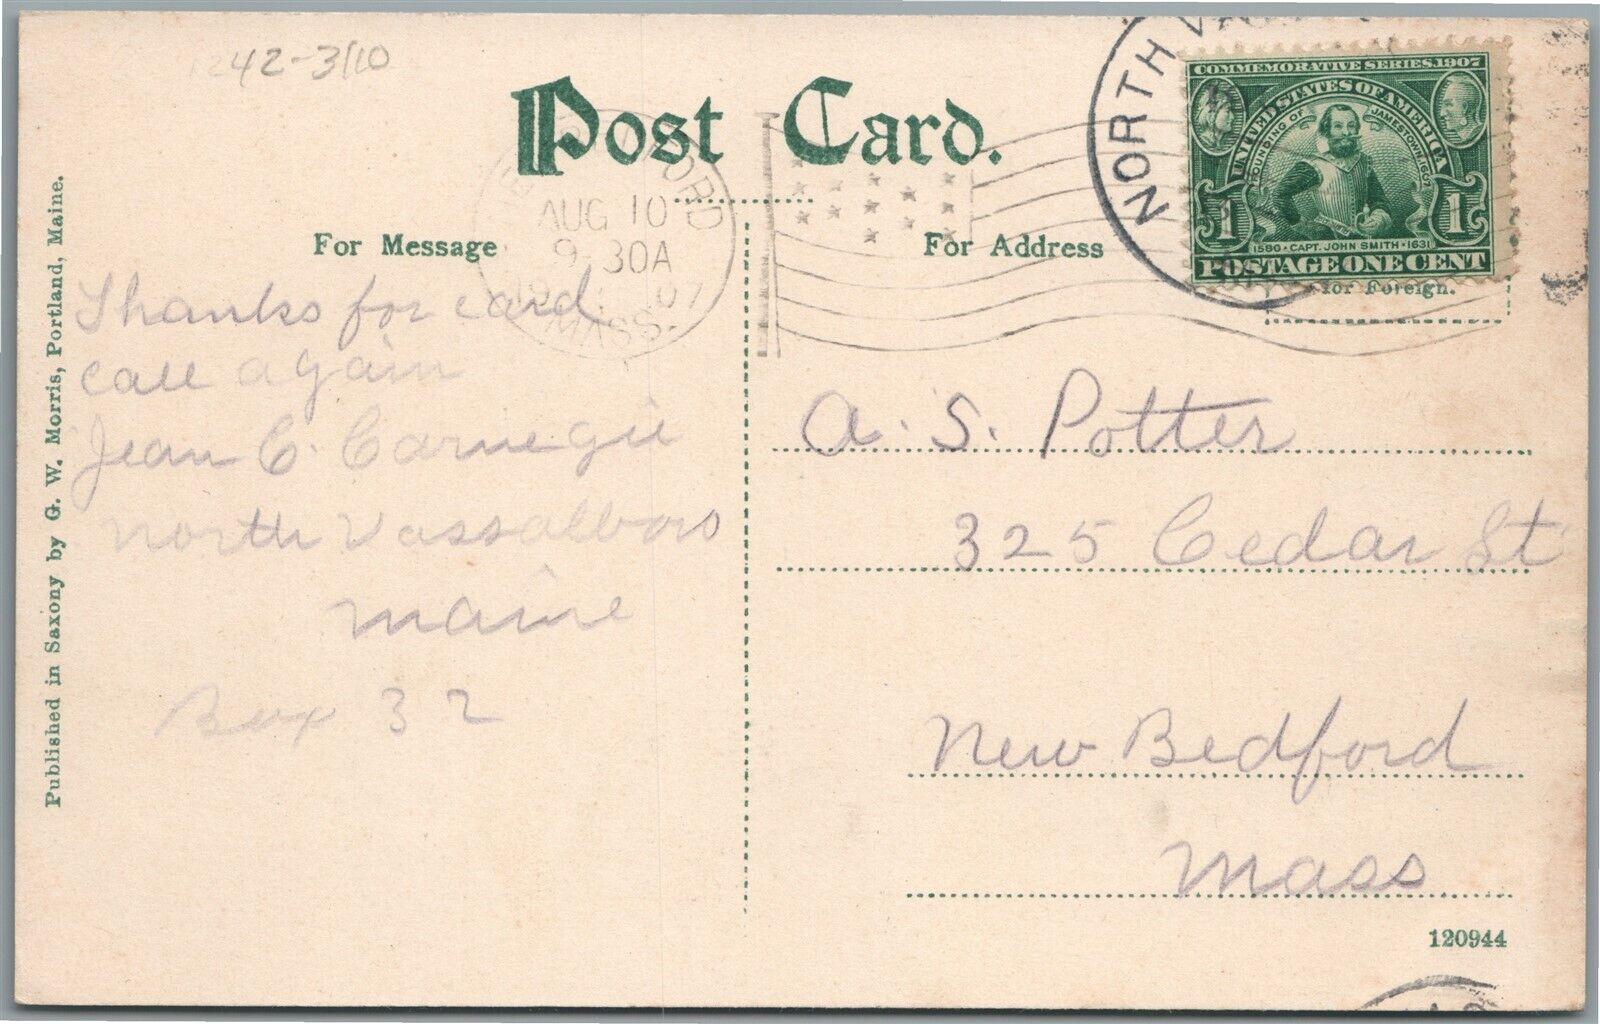 1242-3/10
Post Card.
For Message
For Address
Published in Saxony by G. W. Morris, Portland, Maine.
AUG 10
9 30A
07
MASS.
NORTH
COMMEMORATIVE SERIES.1907
UNITED STATES OF AMERICA
FOUNDING OF JAMESTOWN 1607
1 1
1580 • CAPT. JOHN SMITH • 1631
POSTAGE ONE CENT
for Foreign.
Thanks for card
call again
Jean C. Carnegie
North Vassalboro
Maine
Box 32
A. S. Potter
325 Cedar St
New Bedford
Mass
120944